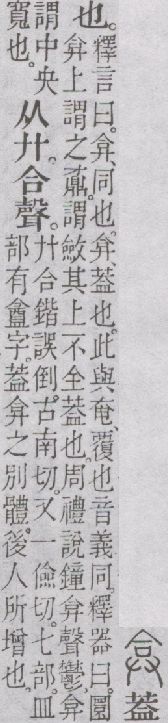 弇 葢
也。釋言曰。弇、同也。弇、葢也。此與奄、覆也音義同。釋器曰。圜
弇上謂之鼒。謂斂其上不全葢也。周禮說鐘弇聲鬱。弇
謂中央
寬也。
从廾。合聲。
廾合鍇誤倒。古南切。又一儉切。七部。皿
部有盫字。葢弇之別體。後人所增也。